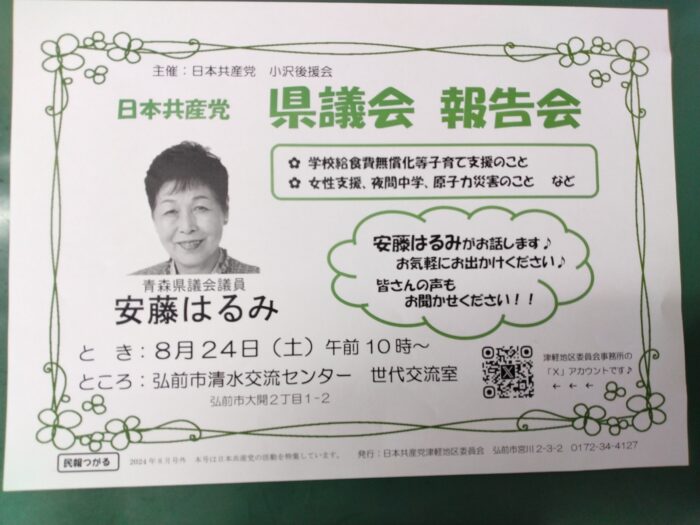 主催：日本共産党　小沢後援会
日本共産党　県議会 報告会
✿ 学校給食費無償化等子育て支援のこと
✿ 女性支援、夜間中学、原子力災害のこと　など
安藤はるみがお話します♪
お気軽にお出かけください♪
皆さんの声も
お聞かせください！！
青森県議会議員
安藤はるみ
と　き：８月２４日（土）午前１０時～
ところ：弘前市清水交流センター　世代交流室
弘前市大開２丁目１-２
津軽地区委員会事務所の
「Ｘ」アカウントです♪
← ← ←
民報つがる　2024年8月号外　本号は日本共産党の活動を特集しています。　発行：日本共産党津軽地区委員会　弘前市宮川２-３-２　0172-34-4127